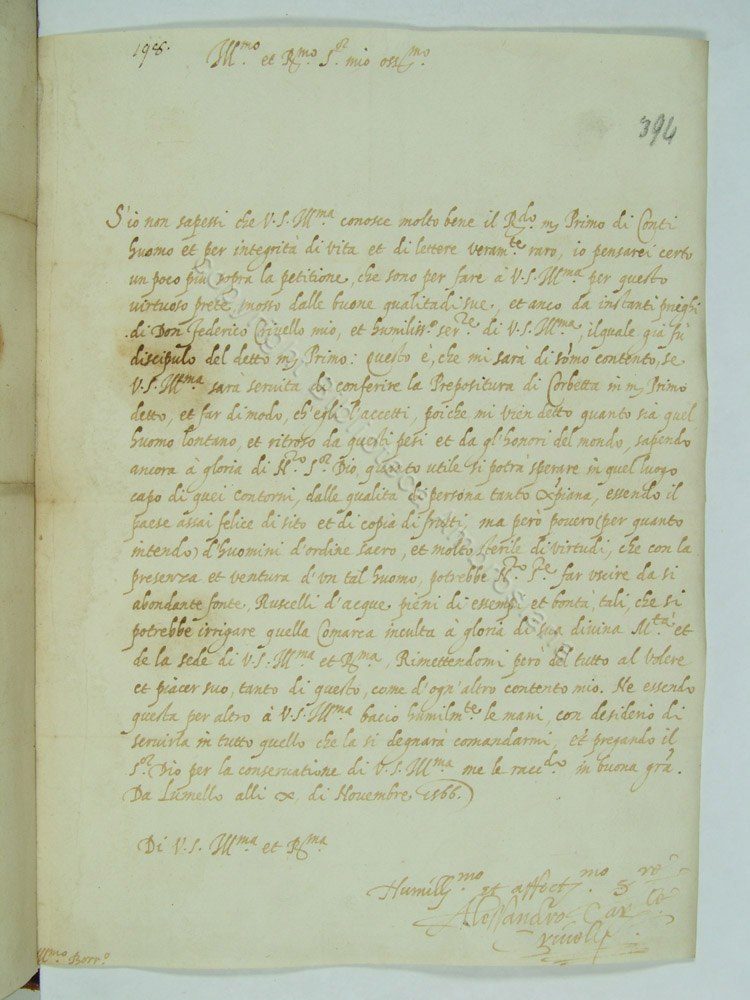 198.
Ill.mo et R.mo S.or mio oss.mo
394
S'io non sapessi che V.S. Ill.ma conosce molto bene il R.do m. Primo di Conti
huomo et per integrità di vita et di lettere veram.te raro, io pensarei certo
un poco più sopra la petitione, che sono per fare à V.S. Ill.ma per questo
virtuoso prete, mosso dalle buone qualitadi sue, et anco da instanti prieghi
di Don Federico Crivello mio, et humiliss.o ser.re di V.S. Ill.ma, il quale già fù
discipulo del detto m. Primo: Questo è, che mi sarà di sõmo contento, se
V.S. Ill.ma sarà servita di conferire la Prepositura di Corbetta in m. Primo
detto, et far di modo, ch'egli l'accetti, poiche mi vien detto quanto sia quel
huomo lontano, et ritroso da questi pesi et da gl'honori del mondo, sapendo
ancora à gloria di N.ro S.or Dio, quanto utile si potrà sperare in quel luogo
capo di quei contorni, dalle qualità di persona tanto xpiana, essendo il
paese assai felice di sito et di copia di frutti, ma però povero (per quanto
intendo) d'huomini d'ordine sacro, et molto sterile di virtudi, che con la
presenza et ventura d'vn tal huomo, potrebbe N.ro S.re far uscire da si
abondante fonte, Ruscelli d'acque pieni di essempi et bontà, tali, che si
potrebbe irrigare quella Comarca inculta à gloria di sua divina M.tà et
de la sede di V.S. Ill.ma et R.ma, Rimettendomi però del tutto al volere
et piacer suo, tanto di questo, come d'ogn'altro contento mio. Ne essendo
questa per altro à V.S. Ill.ma bacio humilm.te le mani, con desiderio di
servirla in tutto quello che la si degnarà comandarmi, et pregando il
S.or Dio per la conservatione di V.S. Ill.ma me le rac.do in buona gra.
Da Lumello alli x, di Novembre 1566.
Di V.S. Ill.ma et R.ma
Humiliss.mo et affect.mo s.re
Alessandro Car.le
Crivelli
Ill.mo Borr.o